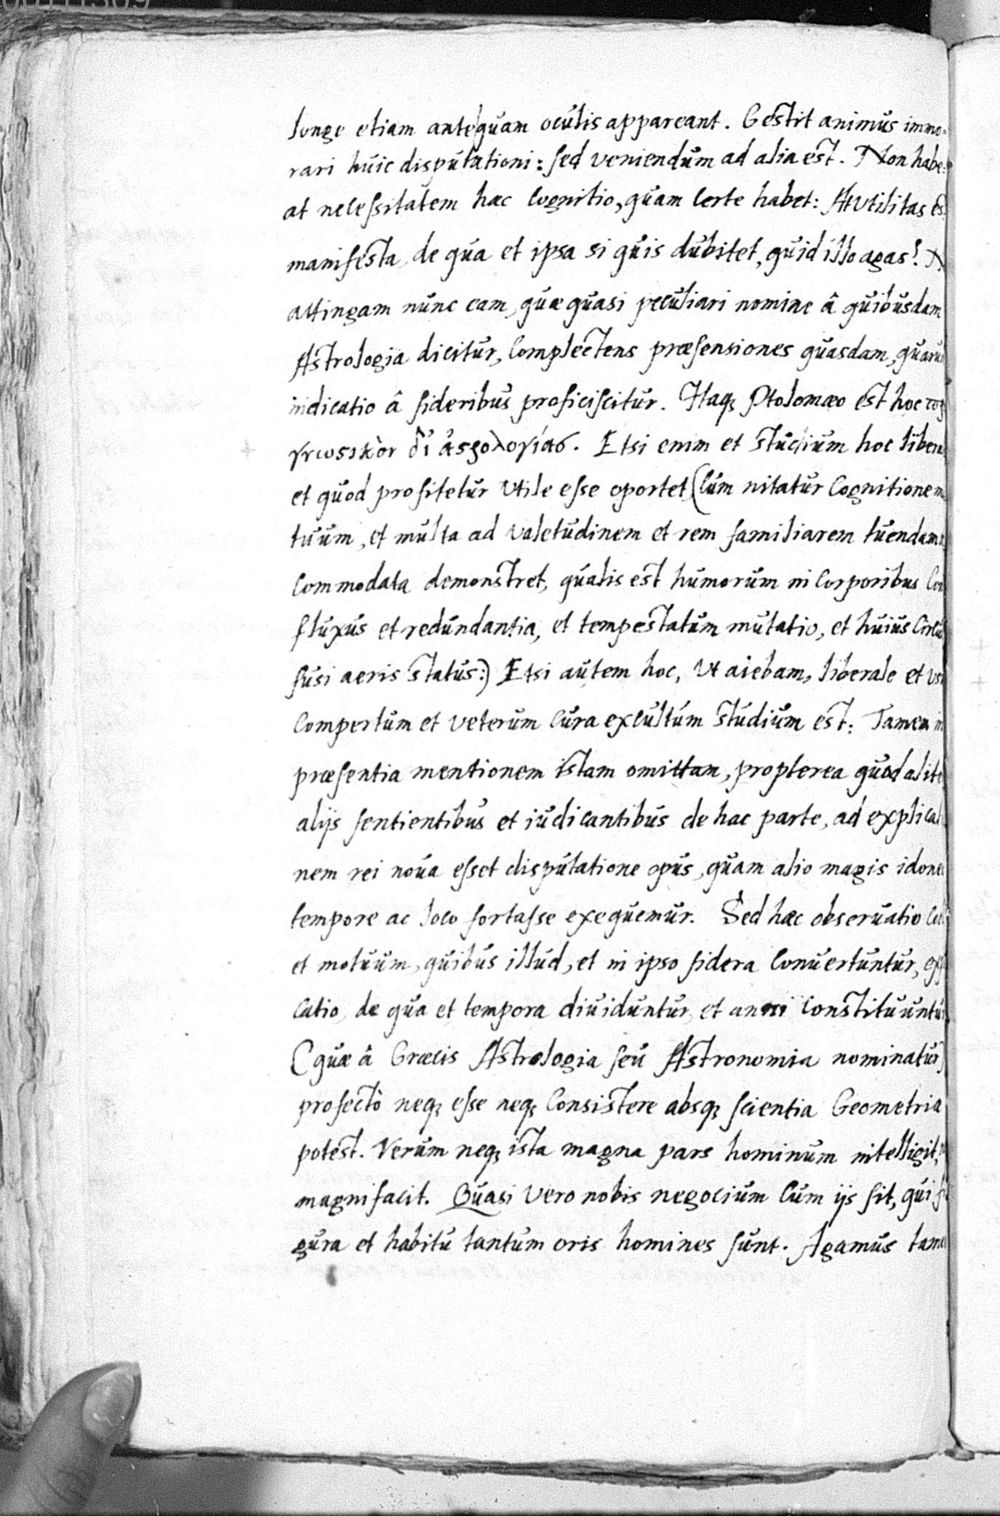 longe etiam antequam oculis appareant. Gestit animus immo-
rari huic disputationi: sed veniendum ad alia est. Non habe-
at necessitatem hæc cognitio, quam certe habet: At utilitas est
manifesta, de qua et ipsa si quis dubitet, quid illo agas?
attingam nunc eam, quæ quasi peculiari nomine â quibusdam
Astrologia dicitur, complectens præsensiones quasdam, quarum
indicatio â sideribus proficiscitur. Itaq; Ptolomæo est hoc
γνωστικὸν δἰ ἀστρολογίας. Etsi enim et studium hoc
et quod profitetur utile esse oportet (cùm nitatur cognitione
tuum, et multa ad valetudinem et rem familiarem tuendam
commodata demonstret, qualis est humorum in corporibus
fluxus et redundantia, et tempestatum mutatio, et huius
fusi aeris status:) Etsi autem hoc, ut aiebam, liberale et
compertum et veterum cura excultùm studium est: Tamen in
præsentia mentionem istam omittam, propterea quod
alijs sentientibus et iudicantibus de hac parte, ad
nem rei noua esset disputatione opus, quam alio magis
tempore ac loco fortasse exequemur. Sed hæc obseruatio
et motuum, quibus illud, et in ipso sidera conuertuntur,
catio, de qua et tempora diuiduntur et anni constituuntur
(quæ â Græcis Astrologia seu Astronomia nominatur)
profectò neq; esse neq; consistere absq; scientia Geometriæ
potest. Verum neq; ista magna pars hominum intelligit,
magni facit. Quasi vero nobis negocium cum ijs sit, qui
gura et habitu tantum oris homines sunt. Agamus